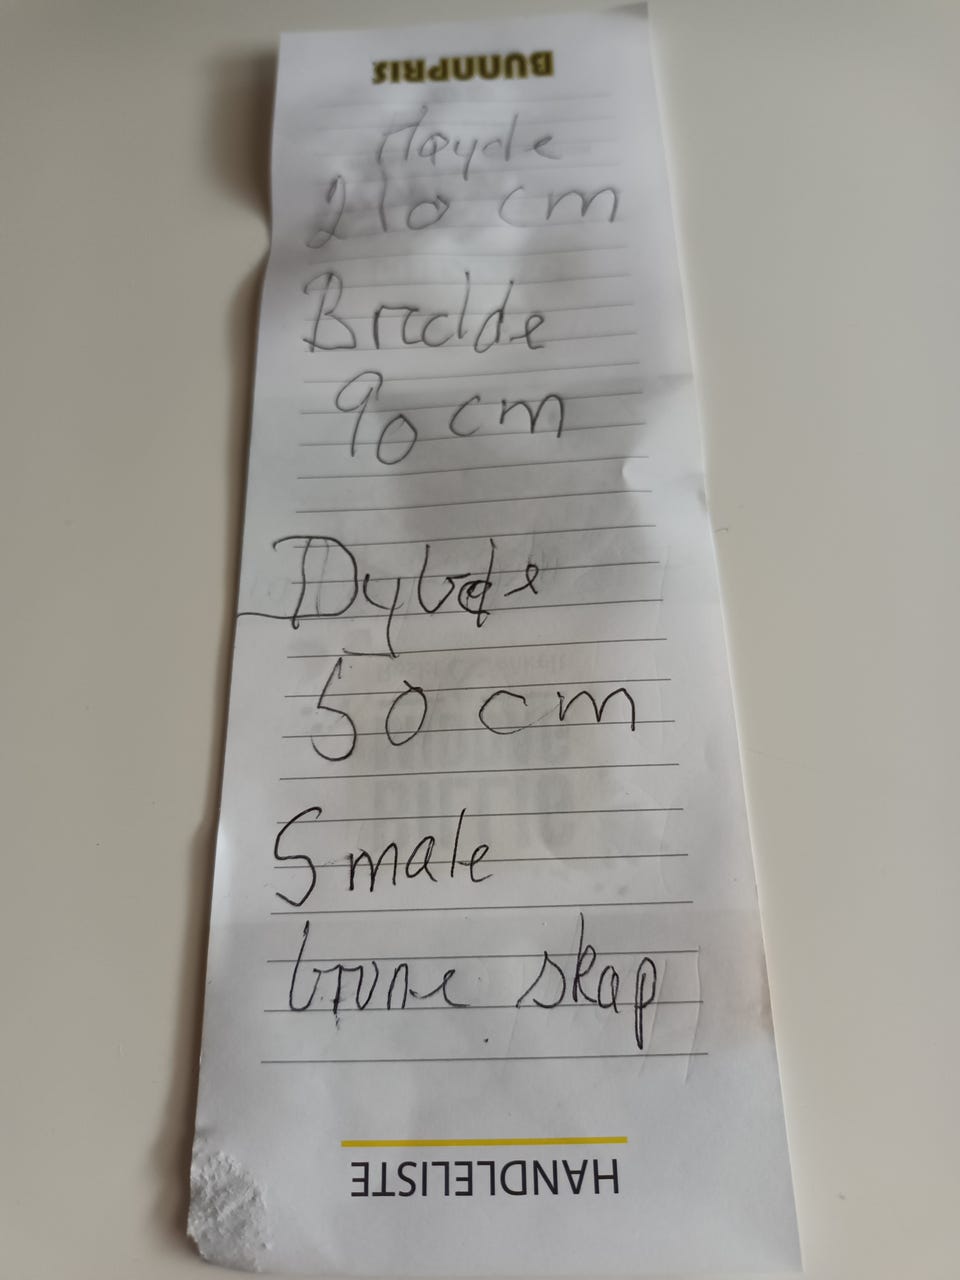 BUNNPRIS
Høyde
210 cm
Bredde
90 cm
Dybde
50 cm
Smale
brune skap
HANDLELISTE